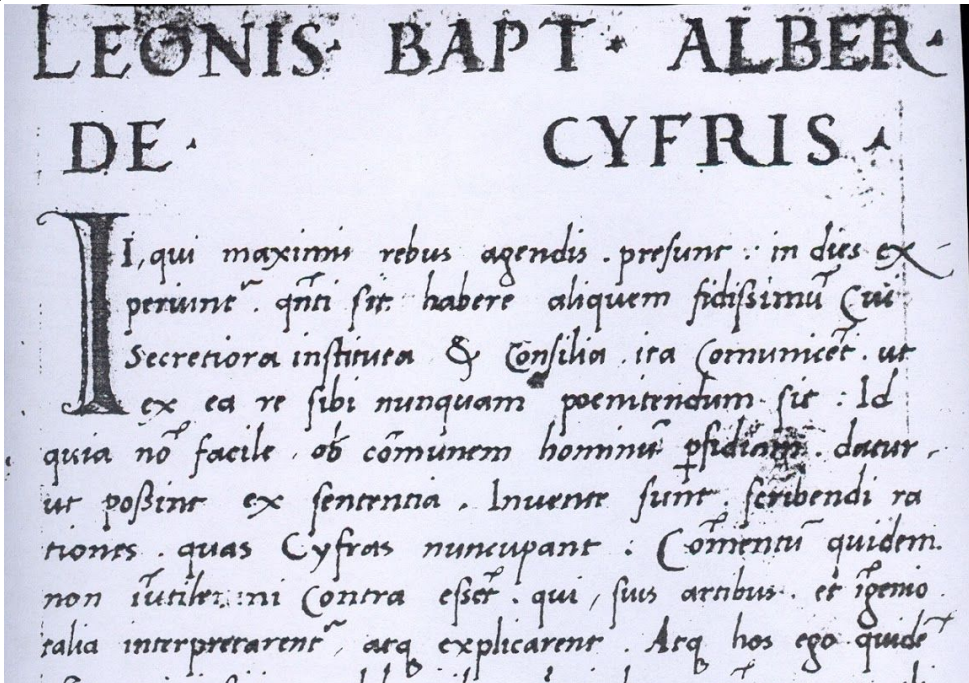 LEONIS· BAPT· ALBER·
DE· CYFRIS·
II, qui maximis rebus agendis . presunt : in dies ex-
periunt᷑ . qn̄ti sit habere aliquem fidissimū Cui
Secretiora instituta & Consilia . ita Comunicēt . ut
ex ea re sibi nunquam poenitendum sit : Id
quia nō facile . ob cōmunem hominū ꝑfidiam . datur ,
ut poßint ex sententia . Invente sunt . scribendi ra
tiones . quas Cyfras nuncupant : Cōmentū quidem
non īutile: ni Contra essēt . qui , suis artibus . et īgenio
talia interpretarent᷑ , atq explicarent . Atq hos ego quidē